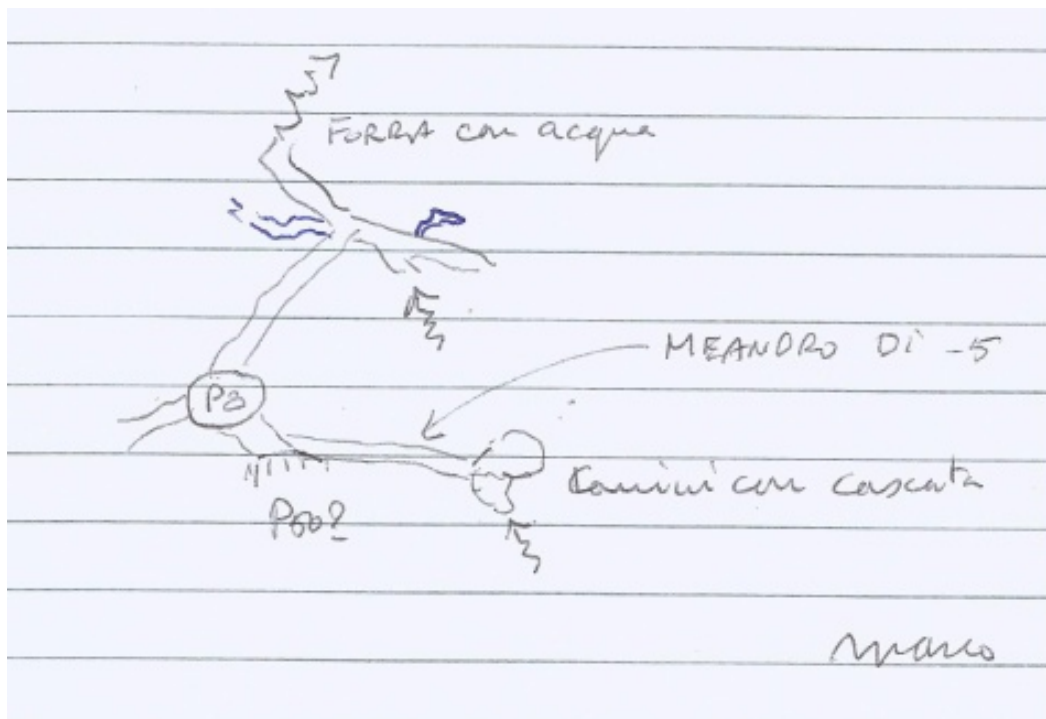 FORRA con acqua
MEANDRO Di -5
P8
Kamini con cascata
P60?
Marco